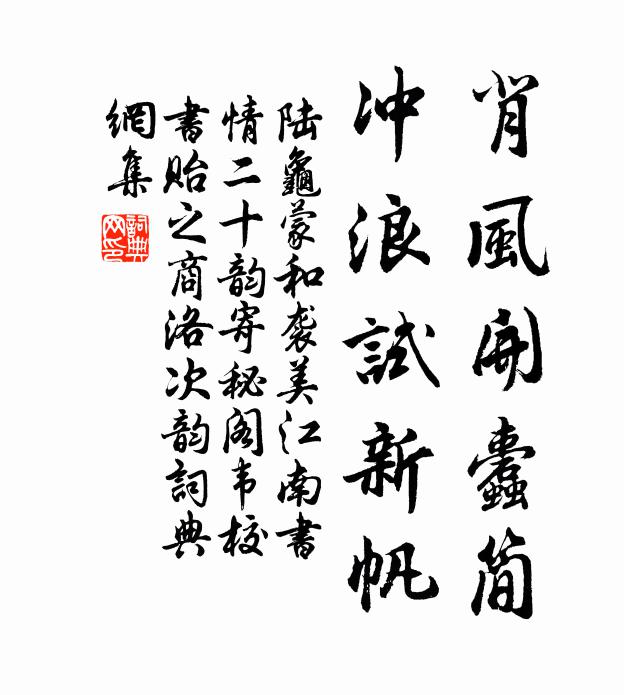 背風開蠹簡
冲浪試新帆
陆龜蒙和袭美江南書
情二十韵寄秘阁韦校
書貽之商洛次韵詞典
網集
詞典
网印